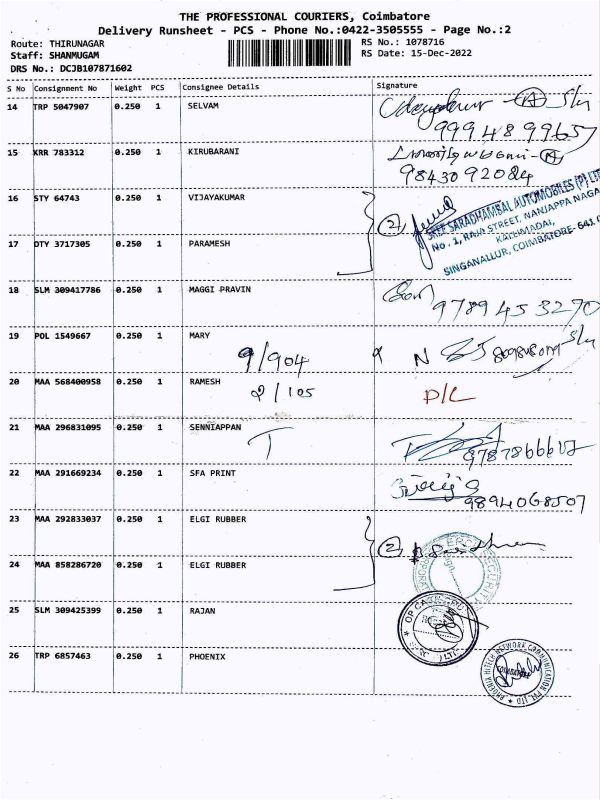 THE PROFESSIONAL COURIERS, Coimbatore
Delivery Runsheet - PCS - Phone No.:0422-3505555 - Page No.:2
Route: THIRUNAGAR
Staff: SHANMUGAM
DRS No.: DCJB107871602
RS No.: 1078716
RS Date: 15-Dec-2022
S No Consignment No Weight PCS Consignee Details Signature
14 TRP 5047907 0.250 1 SELVAM
9994899657
15 KRR 783312 0.250 1 KIRUBARANI
9843092084
16 STY 64743 0.250 1 VIJAYAKUMAR
2
SREE SARADHAMBAL AUTOMOBILES (P) LT
No. 1, RAJA STREET, NANJAPPA NAGA
KALLIMADAI,
SINGANALLUR, COIMBATORE- 641 0
17 DTY 3717305 0.250 1 PARAMESH
18 SLM 309417786 0.250 1 MAGGI PRAVIN
9789453270
19 POL 1549667 0.250 1 MARY
9/904
N
20 MAA 568400958 0.250 1 RAMESH
2/105
D/L
21 MAA 296831095 0.250 1 SENNIAPPAN
T
22 MAA 291669234 0.250 1 SFA PRINT
9894068507
23 MAA 292833037 0.250 1 ELGI RUBBER
2
24 MAA 858286720 0.250 1 ELGI RUBBER
25 SLM 309425399 0.250 1 RAJAN
26 TRP 6857463 0.250 1 PHOENIX
PHOENIX HITECH NETWORK COMMUNICATION PVT. LTD
COIMBATORE